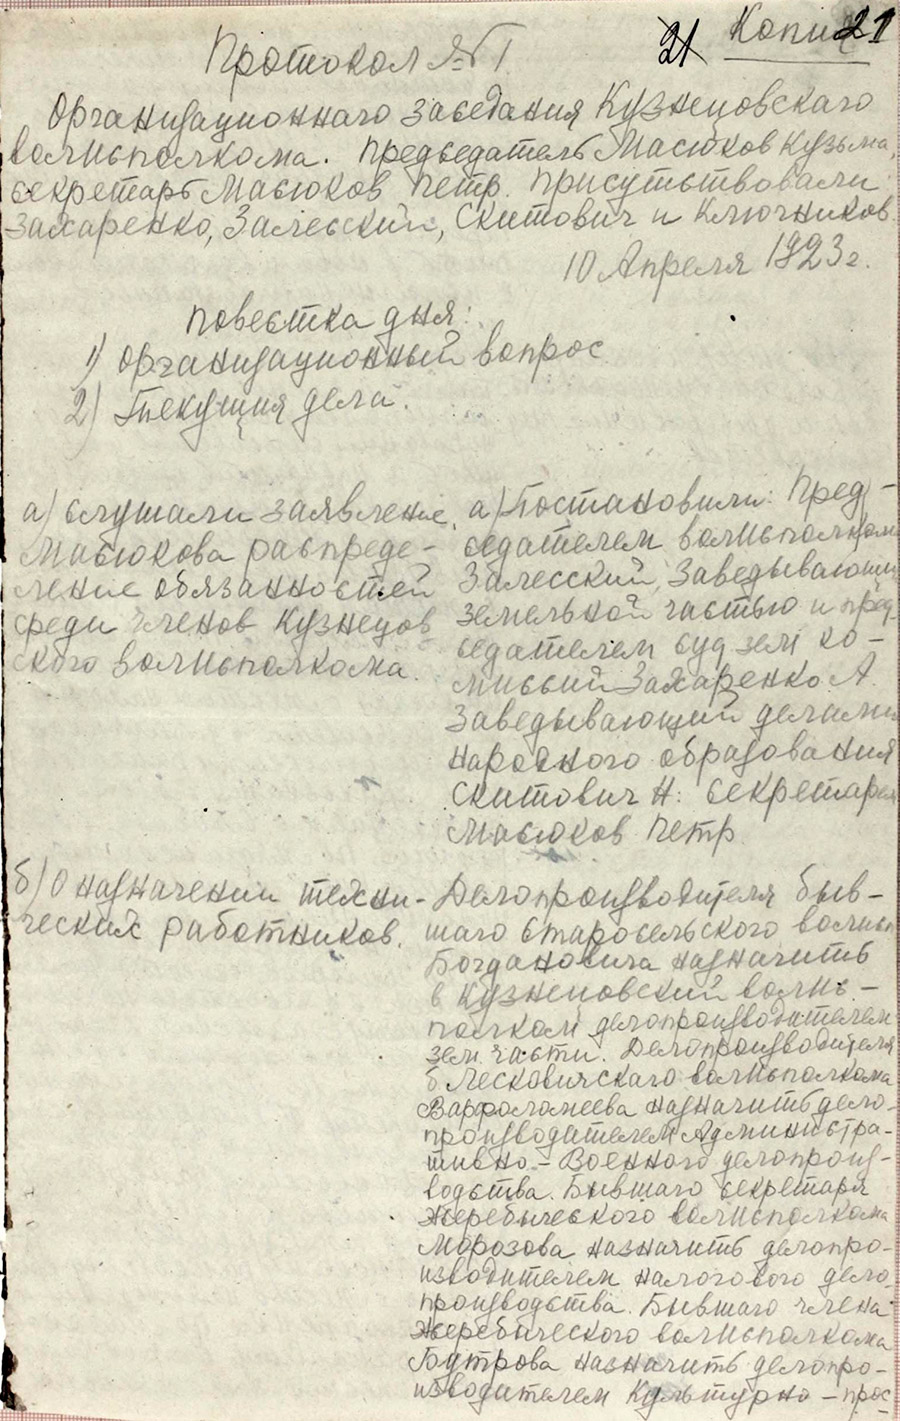 21 Копия 21
Протокол №1
Организационнаго заседания Кузнецовскаго
волисполкома. Председатель Масюков Кузьма,
секретарь Масюков Петр. Присутствовали
Захаренко, Залесский, Скитович и Ключников.
10 Апреля 1923 г.
Повестка дня:
1) Организационный вопрос
2) Текущия дела.
а) Слушали заявление
Масюкова распреде-
ление обязанностей
среди членов Кузнецов
ского волисполкома.
а) Постановили: Пред-
седателем волисполкома
Залесский, Заведывающий
земельной частью и пред-
седателем суд зем ко-
миссий Захаренко А.
Заведывающий делами
народного образования
Скитович Н: секретарем
Масюков Петр
б) О назначении техни-
ческих работников.
Делопроизводителя быв-
шаго Старосельского волисп
Богдановича назначить
в Кузнецовский волис-
полком делопроизводителем
зем. части. Делопроизводителя
б. Лесковичскаго волисполкома
Варфоломеева назначить дело-
производителем Администра-
тивно - Военного делопроиз-
водства. Бывшаго секретаря
Жеребыческого волисполкома
Морозова назначить делопро-
изводителем налогового дело-
производства. Бывшаго члена
Жеребыческого волисполкома
Бутрова назначить делопро-
изводителем Культурно - прос